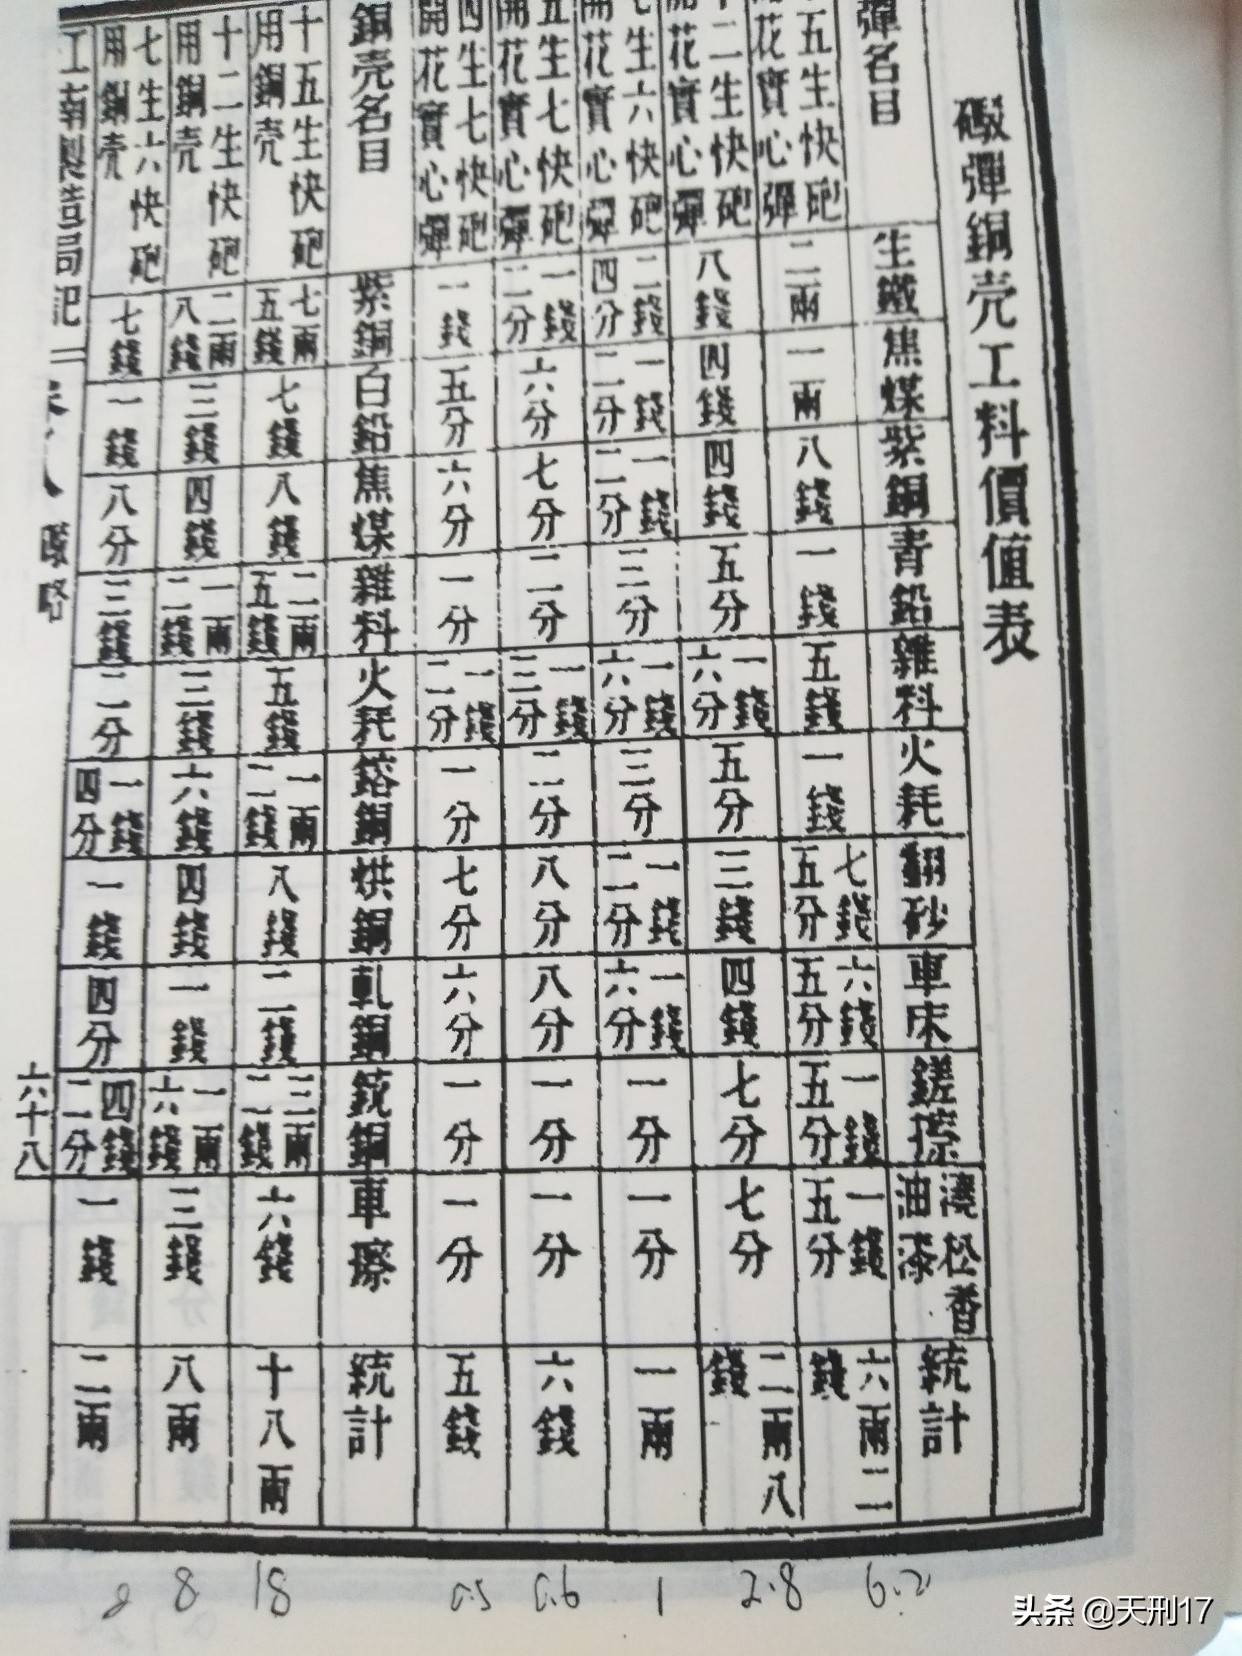 礮彈銅壳工料價值表
彈名目 生鐵 焦煤 紫銅 青鉛 雜料 火耗 翻砂 車床 鎈擦 澆松香油漆 統計
五生快砲花實心彈 二兩 一兩 八錢 一錢 五錢 一錢 七錢五分 六錢五分 一錢五分 一錢五分 六兩二錢
十二生快砲開花實心彈 八錢 四錢 四錢 五分 一錢六分 五分 三錢 四錢 七分 七分 二兩八錢
七生六快砲開花實心彈 二錢四分 一錢二分 一錢二分 三分 一錢六分 三分 一錢二分 一錢六分 一分 一分 一兩
五生七快砲開花實心彈 一錢二分 六分 七分 二分 一錢三分 二分 八分 八分 一分 一分 六錢
四生七快砲開花實心彈 一錢 五分 六分 一分 一錢二分 一分 七分 六分 一分 一分 五錢
銅壳名目 紫銅 白鉛 焦煤 雜料 火耗 鎔銅 烘銅 軋銅 銃銅 車擦 統計
十五生快砲用銅壳 七兩五錢 七錢 八錢 二兩五錢 五錢 一兩二錢 八錢 二錢 三兩二錢 六錢 十八兩
十二生快砲用銅壳 二兩八錢 三錢 四錢 一兩二錢 三錢 六錢 四錢 一錢 一兩六錢 三錢 八兩
七生六快砲用銅壳 七錢 一錢 八分 三錢 二分 一錢四分 一錢 四分 四錢二分 一錢 二兩
工南製造局記 略 六十八
2 8 18 0.5 0.6 1 2.8 6.2
头条 @天刑17